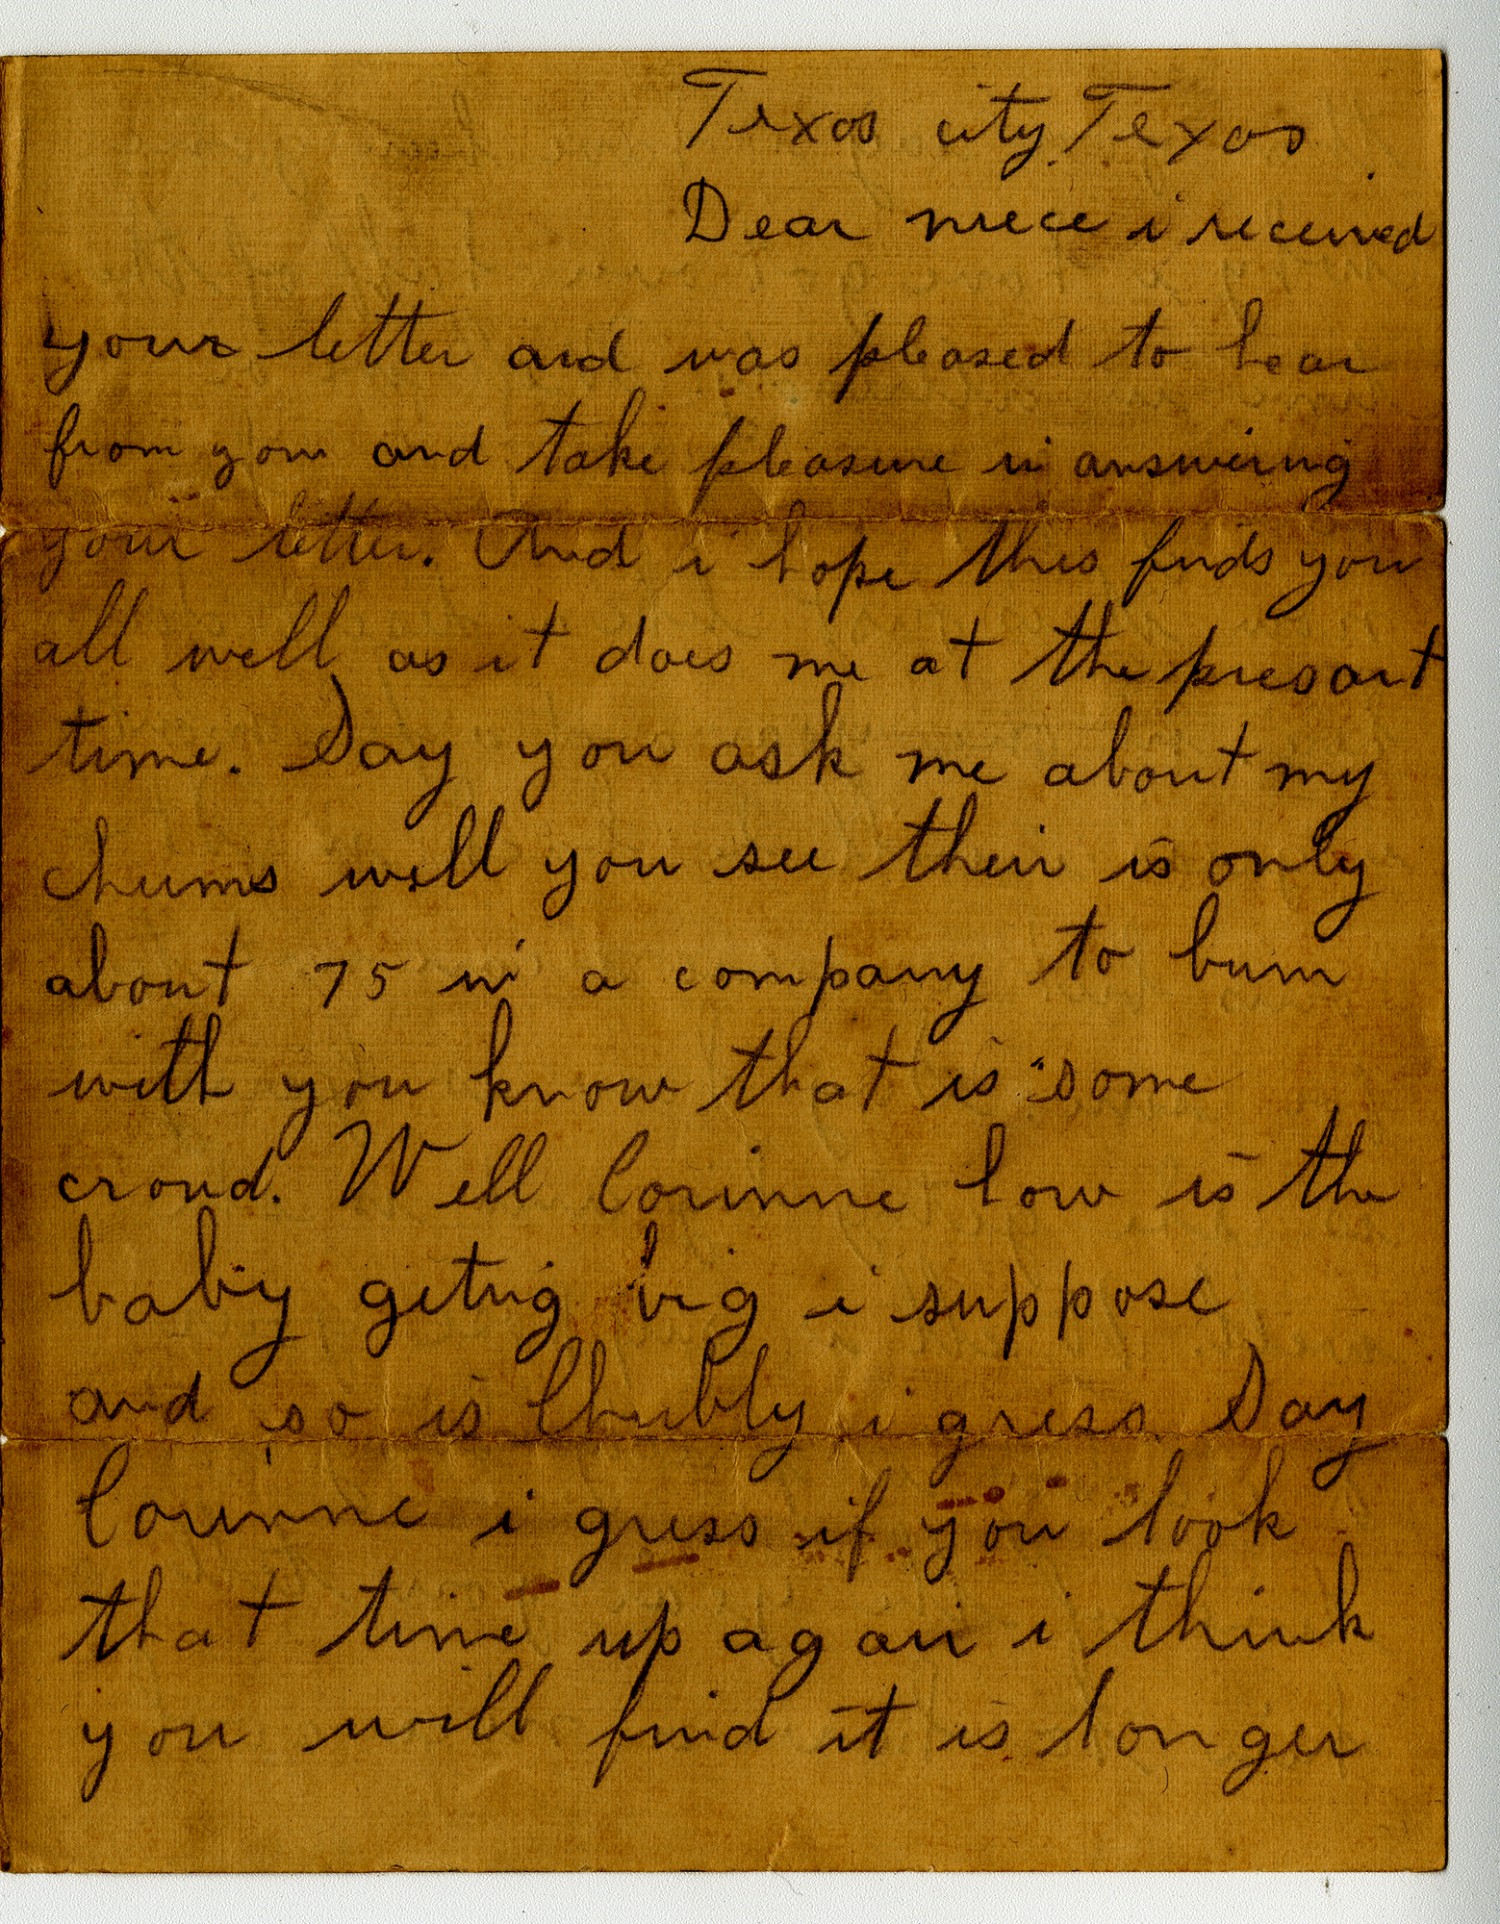 Texas city, Texas
Dear niece i received
your letter and was pleased to hear
from you and take pleasure in answering
your letter. And i hope this finds you
all well as it does me at the presant
time. Say you ask me about my
chums well you see their is only
about 75 in a company to bum
with you know that is some
croud. Well Corinne how is the
baby geting big i suppose
and so is Chubby i gress. Say
Corinne i gress if you look
that time up again i think
you will find it is longer